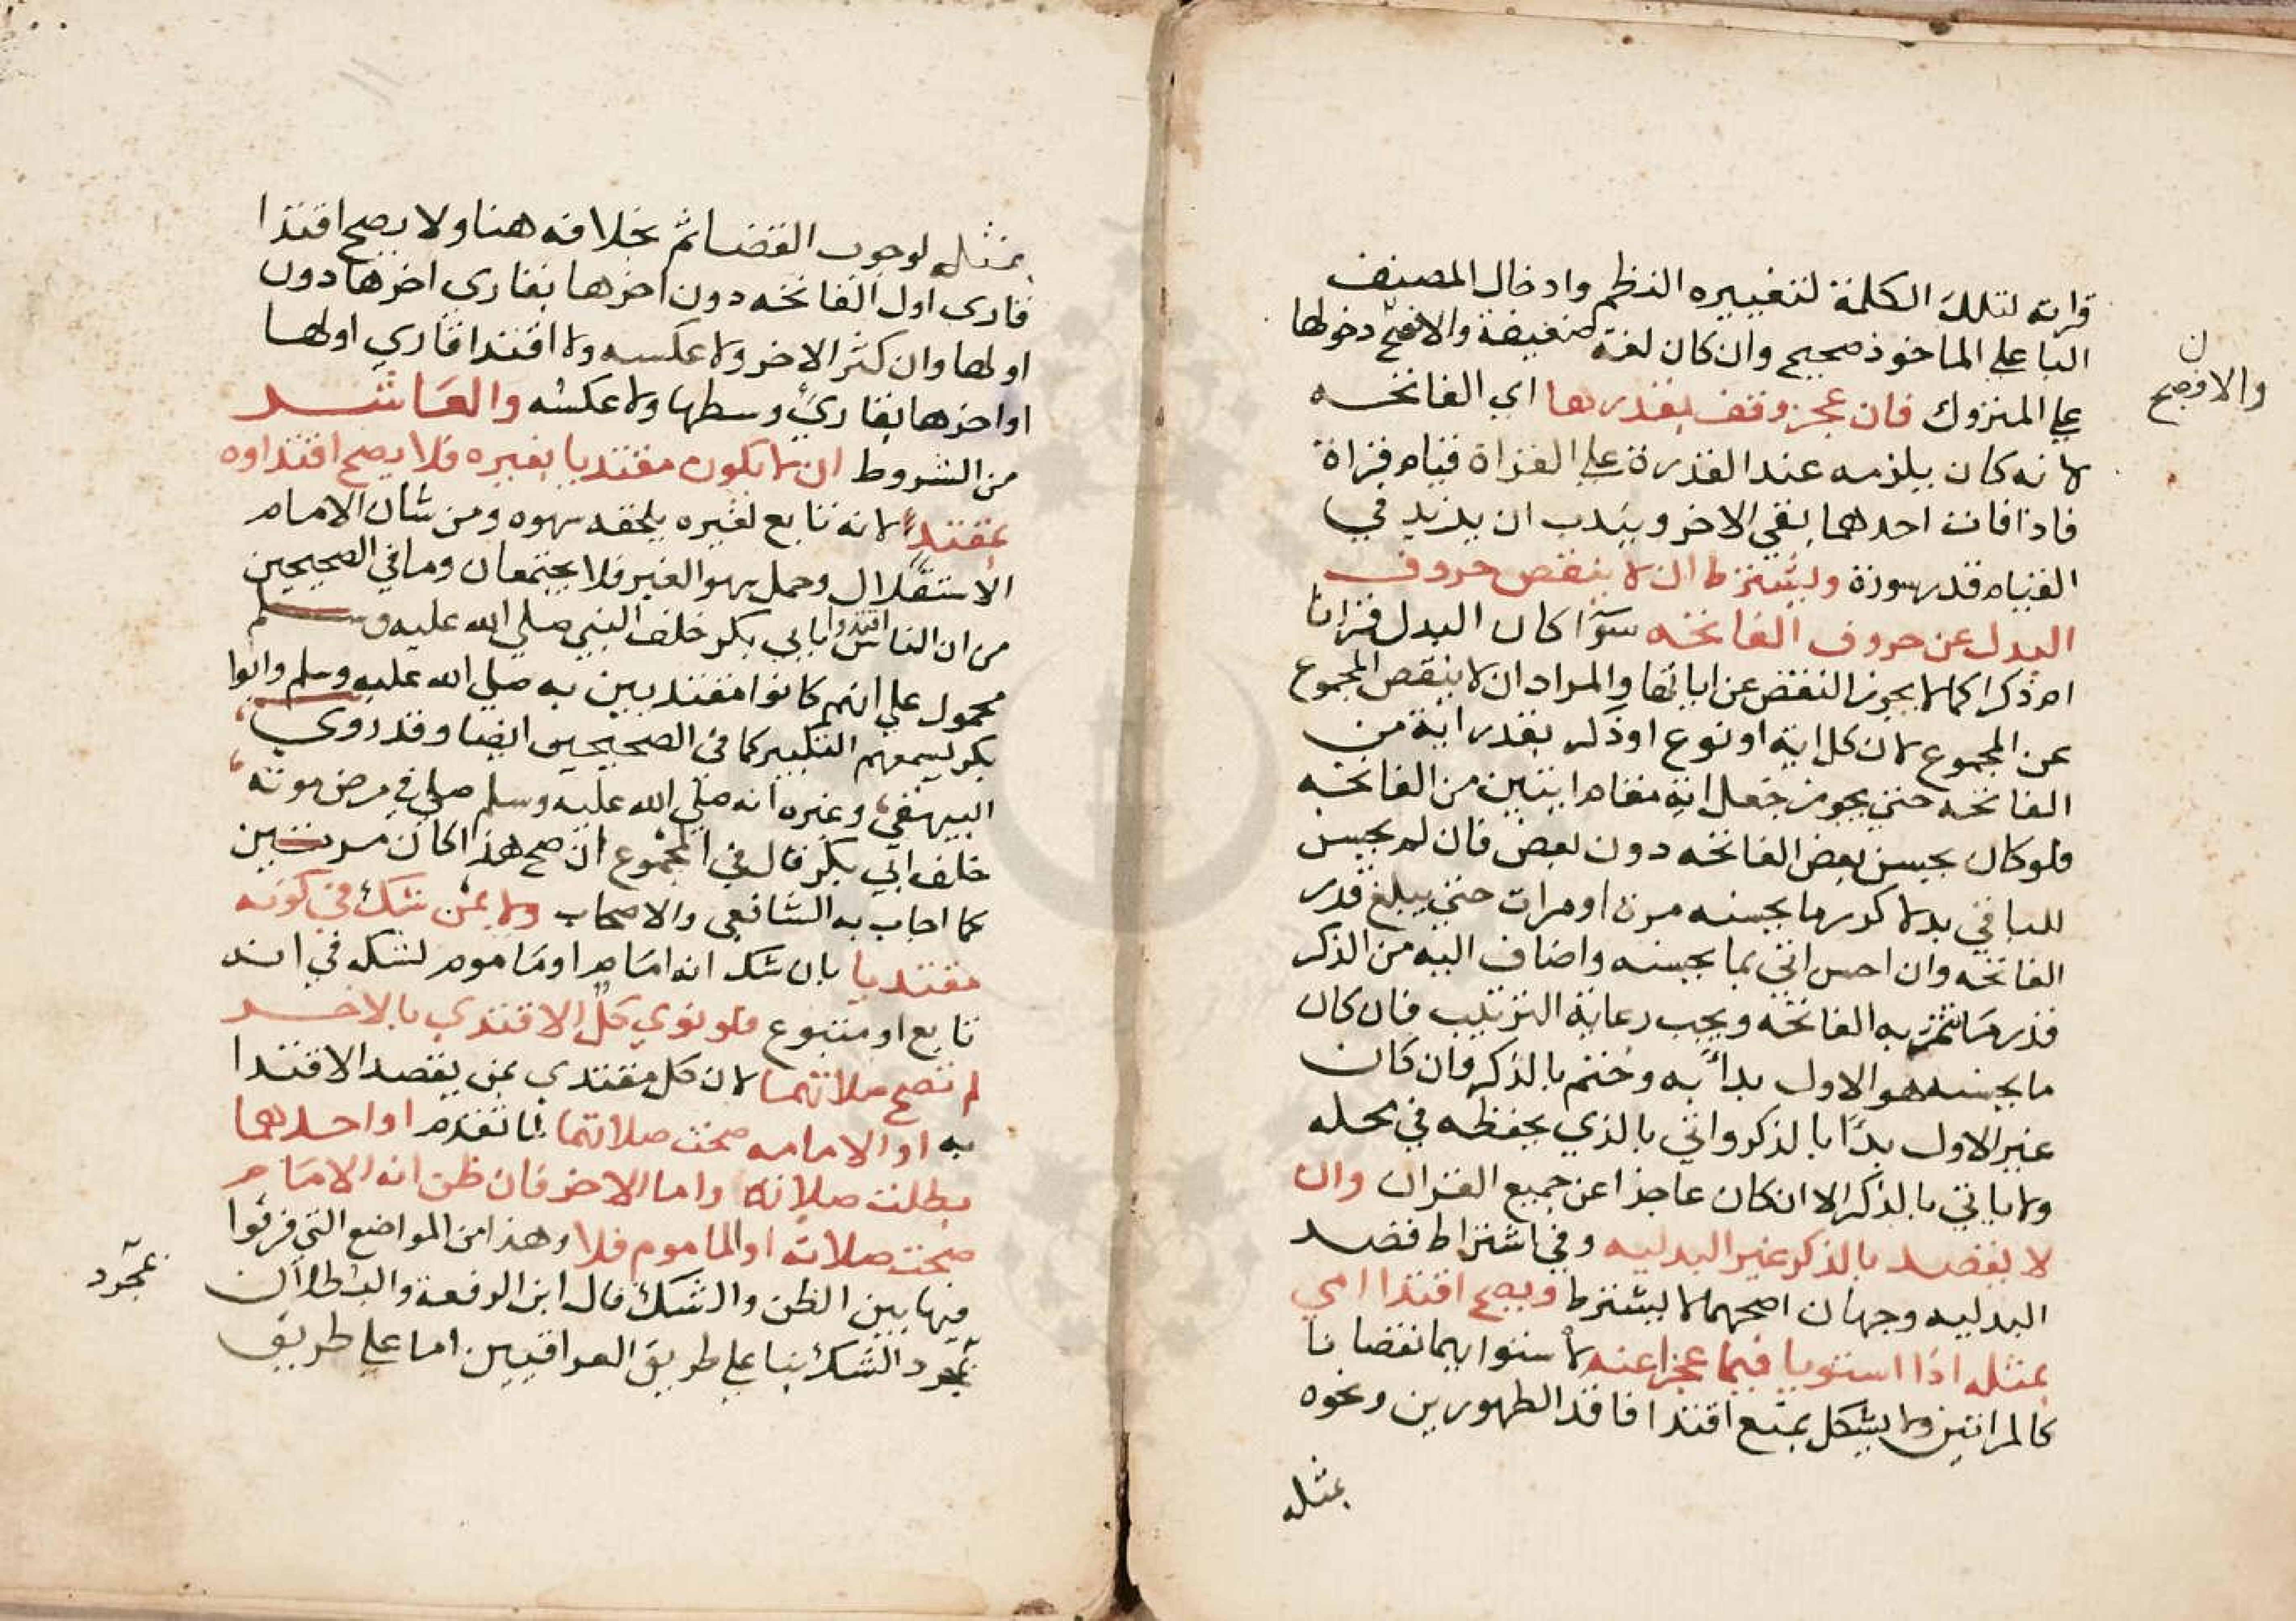 قراته لتلك الكلمة لتغييره النظم وادخال المصنف
البا علي الماخوذ صحيح وان كان لغة ضعيفة والافصح دخولها
ن
والافصح
علي المتروك فان عجز وقف بقدرها اي الفاتحه
لانه كان يلزمه عند القدرة علي القراة قيام وقراة
فاذا فات احدهما بقي الاخر ويندب ان يزيد في
القيام قدر سورة ويشترط ان لا ينقص حروف
البدل عن حروف الفاتحه سوآ اكان البدل قرانا
ام ذكرا كما لا يجوز النقص عن اياتها والمراد ان لا ينقص المجموع
عن المجموع لان كل اية او نوع او ذكر بقدر اية من
الفاتحه حتي يجوز جعل اية مقام ايتين من الفاتحه
فلو كان يحسن بعض الفاتحه دون بعض فان لم يحسن
للباقي بدلا كرر ما يحسنه مرة او مرات حتي يبلغ قدر
الفاتحه وان احسن اتي بما يحسنه واضاف اليه من الذكر
قدر ما تتم به الفاتحه ويجب رعاية الترتيب فان كان
ما يحسنه هو الاول بدأ به وختم بالذكر وان كان
غير الاول بدا بالذكر واتي بالذي يحفظه في محله
ولا ياتي بالذكر الا ان كان عاجزا عن جميع القران وان
لا يقصد بالذكر غير البدليه وفي اشتراط قصد
البدليه وجهان اصحهما لا يشترط ويصح اقتدا امي
بمثله اذا استويا فيما عجزا عنه لاستوايهما نقصانا
كالمراتين ولا يشكل بمنع اقتدا فاقد الطهورين ونحوه
بمثله
بمثله لوجوب القضا ثم بخلافه هنا ولا يصح اقتدا
قاري اول الفاتحه دون اخرها بقاري اخرها دون
اولها وان كثر الاخر ولا عكسه ولا اقتدا قاري اولها
او اخرها بقاري وسطها ولا عكسه والعاشر
من الشروط ان لا يكون مقتديا بغيره فلا يصح اقتداوه
بمقتد لانه تابع لغيره يلحقه سهوه ومن شان الامام
الاستقلال وحمل سهو الغير فلا يجتمعان وما في الصحيحين
من ان الناس اقتدوا بابي بكر خلف النبي صلي الله عليه وسلم
محمول علي انهم كانوا مقتديين به صلي الله عليه وسلم وابوا
بكر يسمعهم التكبير كما في الصحيحين ايضا وقد روي
البيهقي وغيره انه صلي الله عليه وسلم صلي في مرض موته
خلف ابي بكر قال في المجموع ان صح هذا كان مرتين
كما اجاب به الشافعي والاصحاب ولا بمن شك في كونه
مقتديا بان شك انه امام او ماموم لشكه في انه
تابع او متبوع فلو نوي كل الاقتدي بالاخر
لم تصح صلاتهما لان كل مقتدي بمن يقصد الاقتدا
به او الامامه صحت صلاتهما لما تقدم او احدهما
بطلت صلاته واما الاخر فان ظن انه الامام
صحت صلاته او الماموم فلا وهذا من المواضع التي فرقوا
فيها بين الظن والشك قال ابن الرفعة والبطلان
بمجرد
بمجرد الشك بنا علي طريق العراقيين اما علي طريق